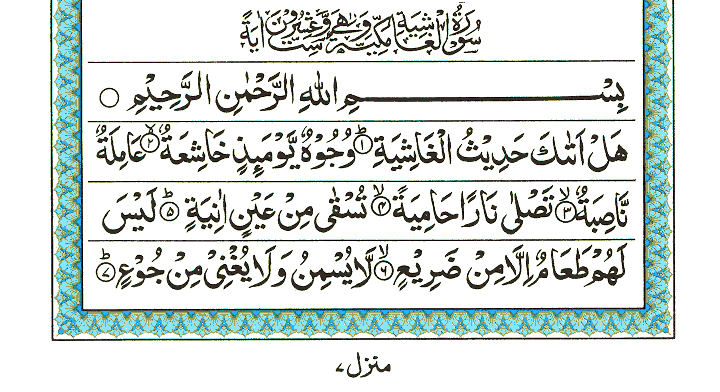 سُوْرَةُ الْغَاشِيَةِ مَكِّيَّةٌ وَّهِيَ سِتٌّ وَّعِشْرُوْنَ اٰيَةً
بِسْمِ اللهِ الرَّحْمٰنِ الرَّحِيْمِ ○
هَلْ اَتٰىكَ حَدِيْثُ الْغَاشِيَةِ ؕ﴿۱﴾ وُجُوْهٌ يَّوْمَىِٕذٍ خَاشِعَةٌ ۙ﴿۲﴾ عَامِلَةٌ
نَّاصِبَةٌ ۙ﴿۳﴾ تَصْلٰى نَارًا حَامِيَةً ۙ﴿۴﴾ تُسْقٰى مِنْ عَيْنٍ اٰنِيَةٍ ؕ﴿۵﴾ لَيْسَ
لَهُمْ طَعَامٌ اِلَّا مِنْ ضَرِيْعٍ ۙ﴿۶﴾ لَّا يُسْمِنُ وَلَا يُغْنِيْ مِنْ جُوْعٍ ؕ﴿۷﴾
منزل ۷